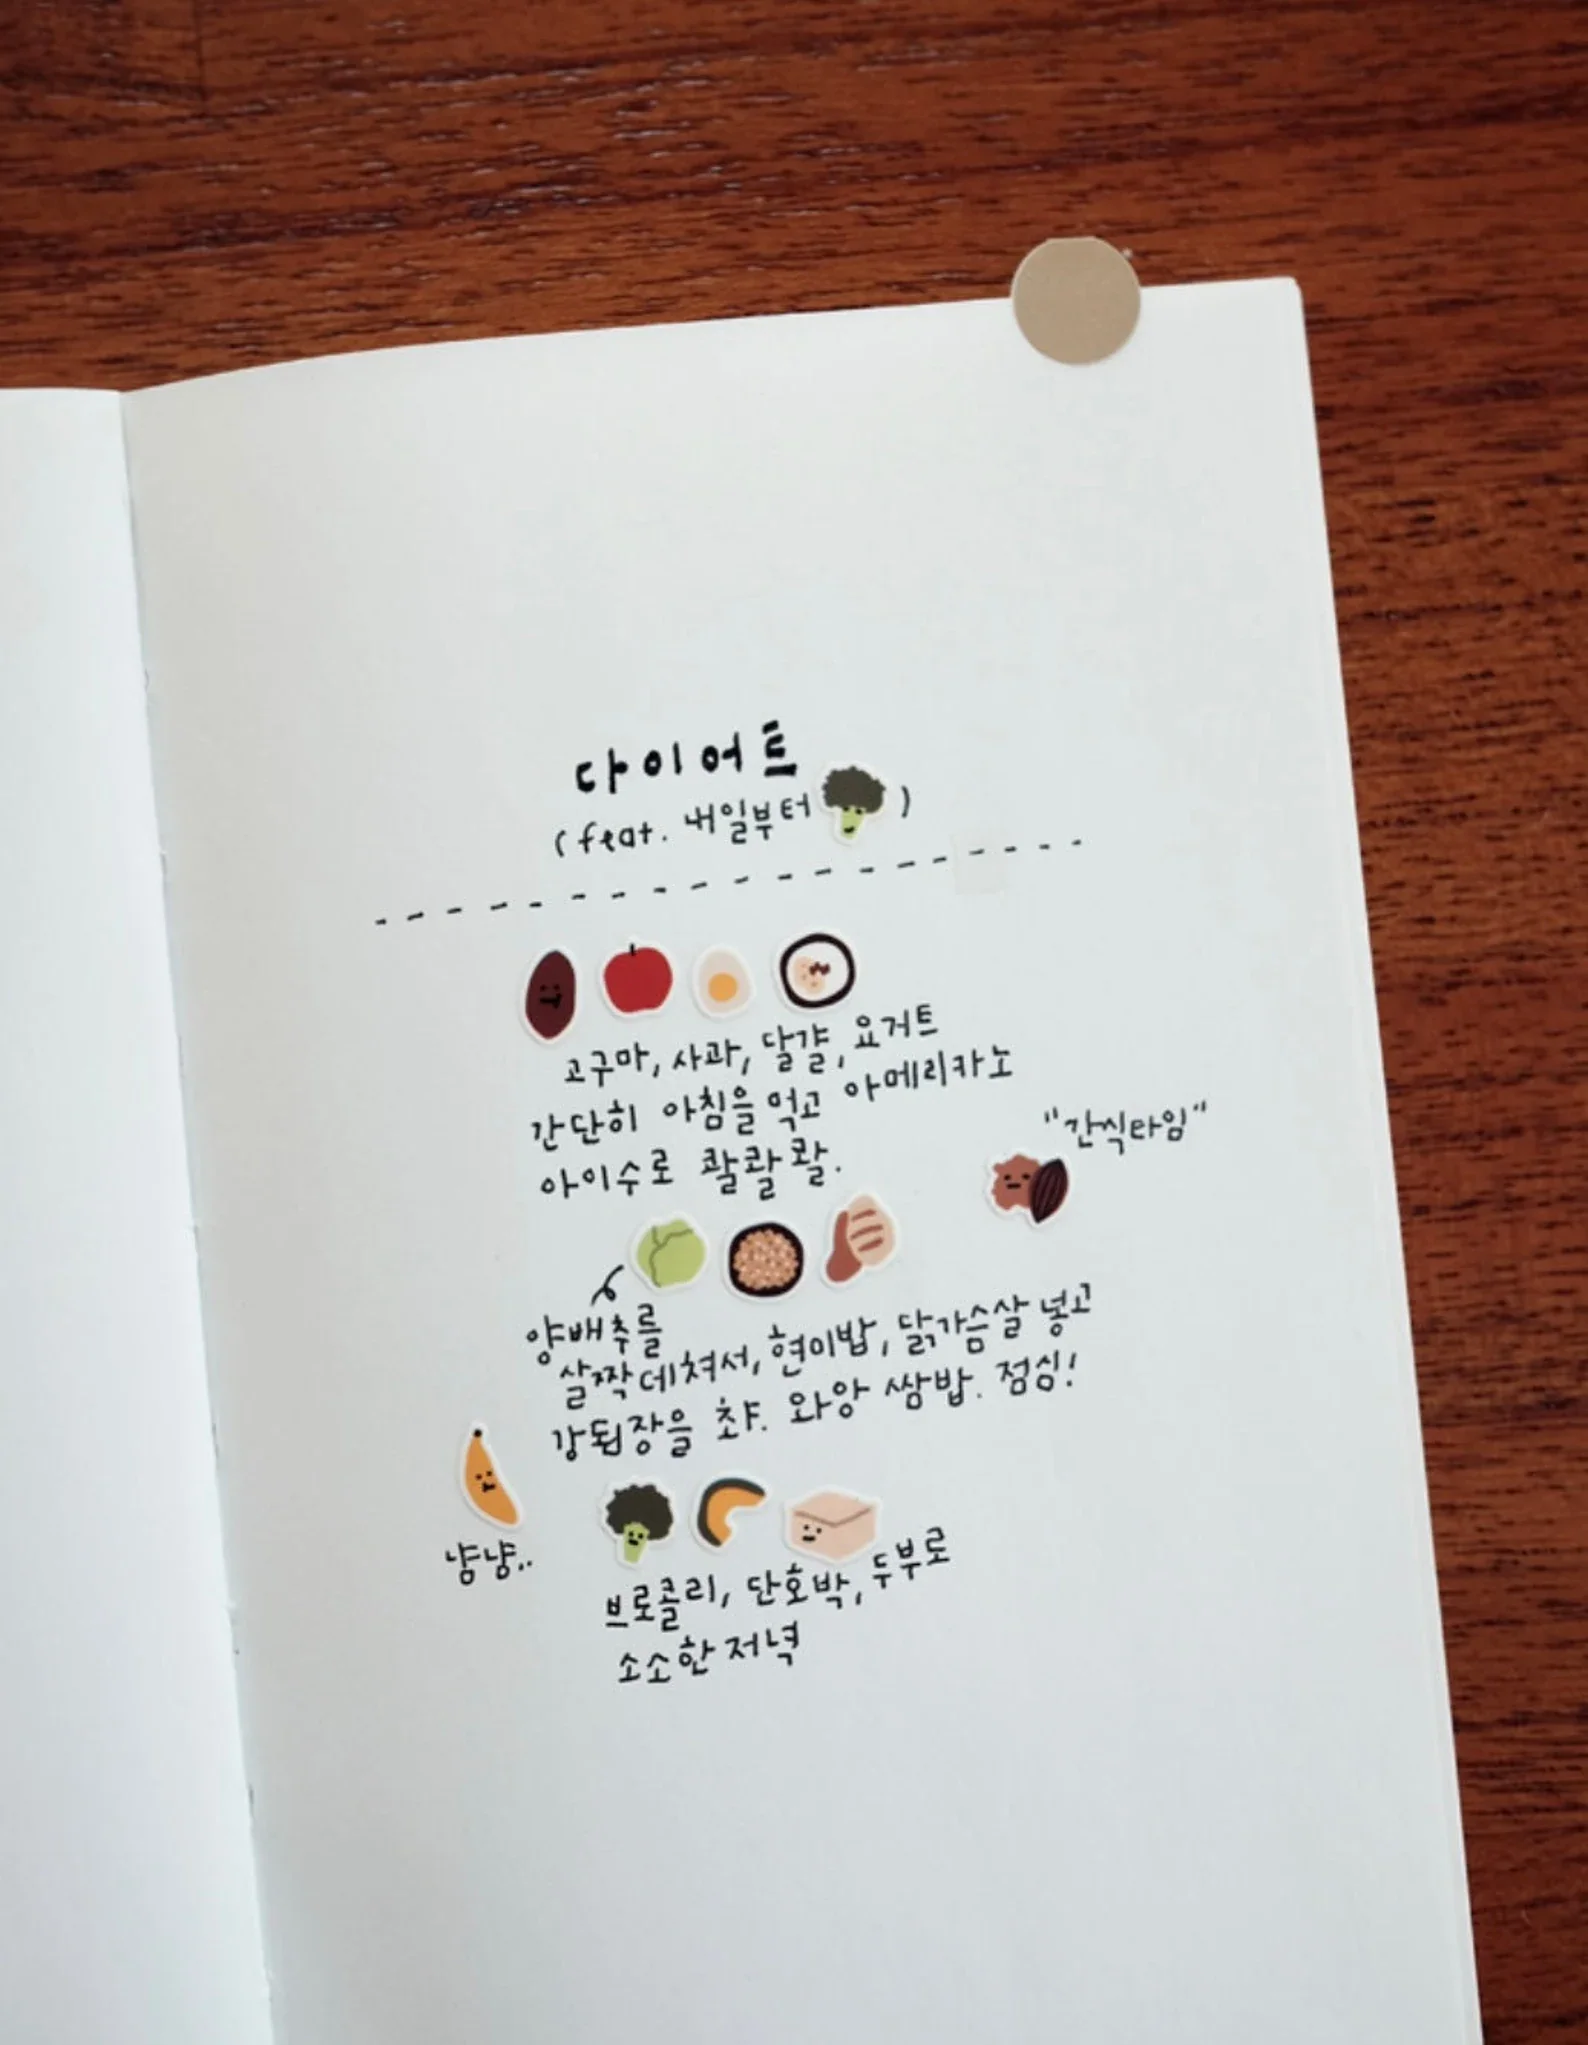 다이어트
(feat. 내일부터 )
고구마, 사과, 달걀, 요거트
간단히 아침을 먹고 아메리카노
아이수로 콸콸콸.
"간식타임"
양배추를
살짝 데쳐서, 현미밥, 닭가슴살 넣고
강된장을 챠. 와앙 쌈밥. 점심!
냠냠..
브로콜리, 단호박, 두부로
소소한 저녁